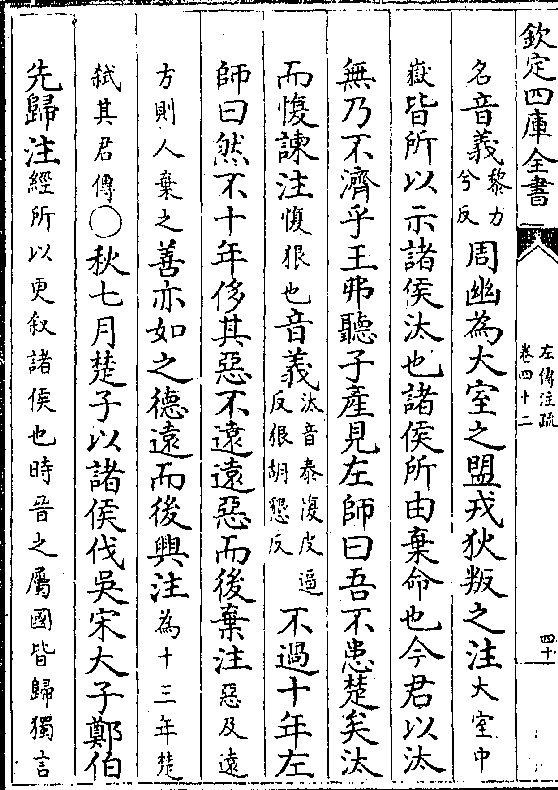 欽定四庫全書
左傳注疏
卷四十二
四十
名音義黎力兮反周幽為大室之盟戎狄叛之注大室中
嶽皆所以示諸侯汰也諸侯所由棄命也今君以汰
無乃不濟乎王弗聽子產見左師曰吾不患楚矣汰
而愎諫注愎狠也音義汰音泰愎皮逼反狠胡懇反不過十年左
師曰然不十年侈其惡不遠遠惡而後棄注惡及遠
方則人棄之善亦如之德遠而後興注為十三年楚
弒其君傳○秋七月楚子以諸侯伐吳宋大子鄭伯
先歸注經所以更叙諸侯也時晉之屬國皆歸獨言